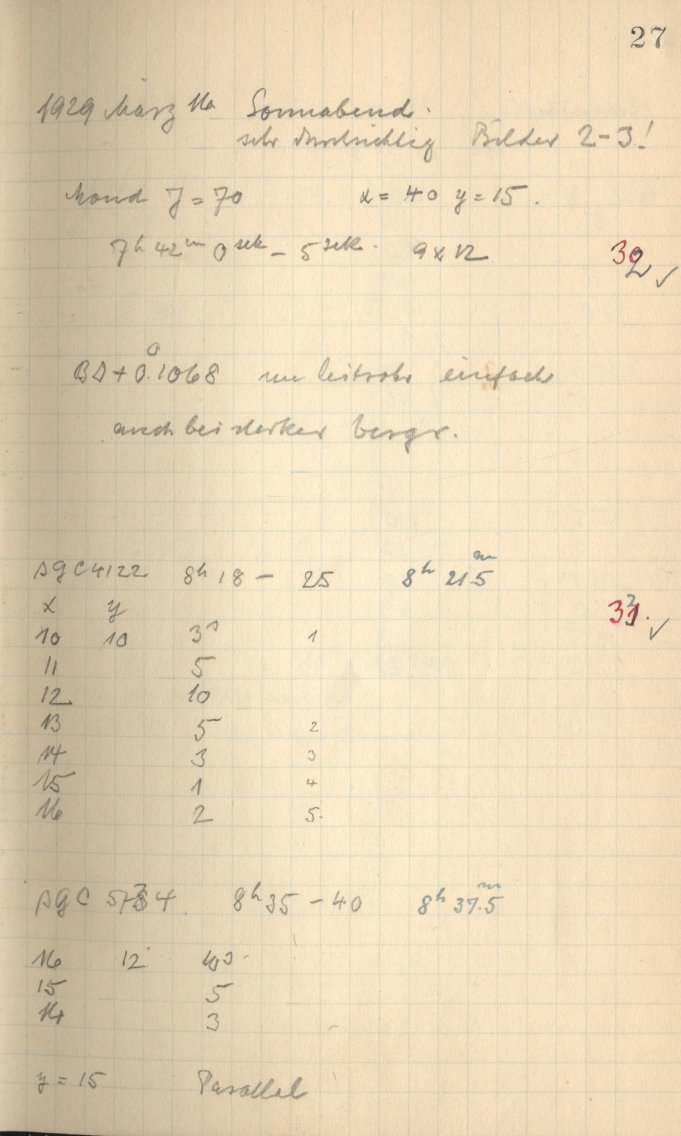 27
1929 März 16 Sonnabend.
sehr durchsichtig Bilder 2-3!
Mond Z = 70 x = 40 y = 15.
7h 42m 0sek - 5sek. 9x12 32 ✓
BD+0°.1068 im Leitrohr einfach
auch bei starker Vergr.
AGC 4122 8h 18 - 25 8h 21.5m
x y 33. ✓
10 10 3s 1
11 5
12 10
13 5 2
14 3 3
15 1 4
16 2 5.
AGC 5734 8h 35 - 40 8h 37.5m
16 12 10s
15 5
14 3
y = 15 Parallel